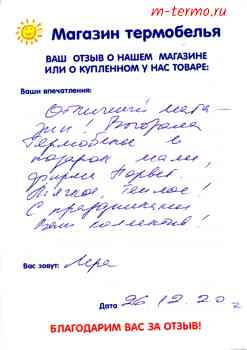 m-termo.ru
Магазин термобелья
ВАШ ОТЗЫВ О НАШЕМ МАГАЗИНЕ
ИЛИ О КУПЛЕННОМ У НАС ТОВАРЕ:
Ваши впечатления:
Отличный мага-
зин! Выбрала
Термобелье в
подарок маме,
фирмы Норвег.
Мягкое, теплое!
С праздниками
Ваш коллектив!
Вас зовут: Лера
Дата 26 12.20
БЛАГОДАРИМ ВАС ЗА ОТЗЫВ!